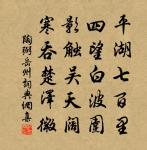 平湖七百里
四望白波圍
影觸吳天闊
寒吞楚澤微
陶弼岳州詞典網集